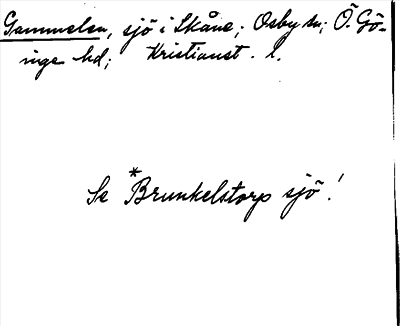 Gammelen, sjö i Skåne; Osby sn; Ö. Gö-
inge hd; Kristianst. l.
Se *Brunkelstorp sjö!